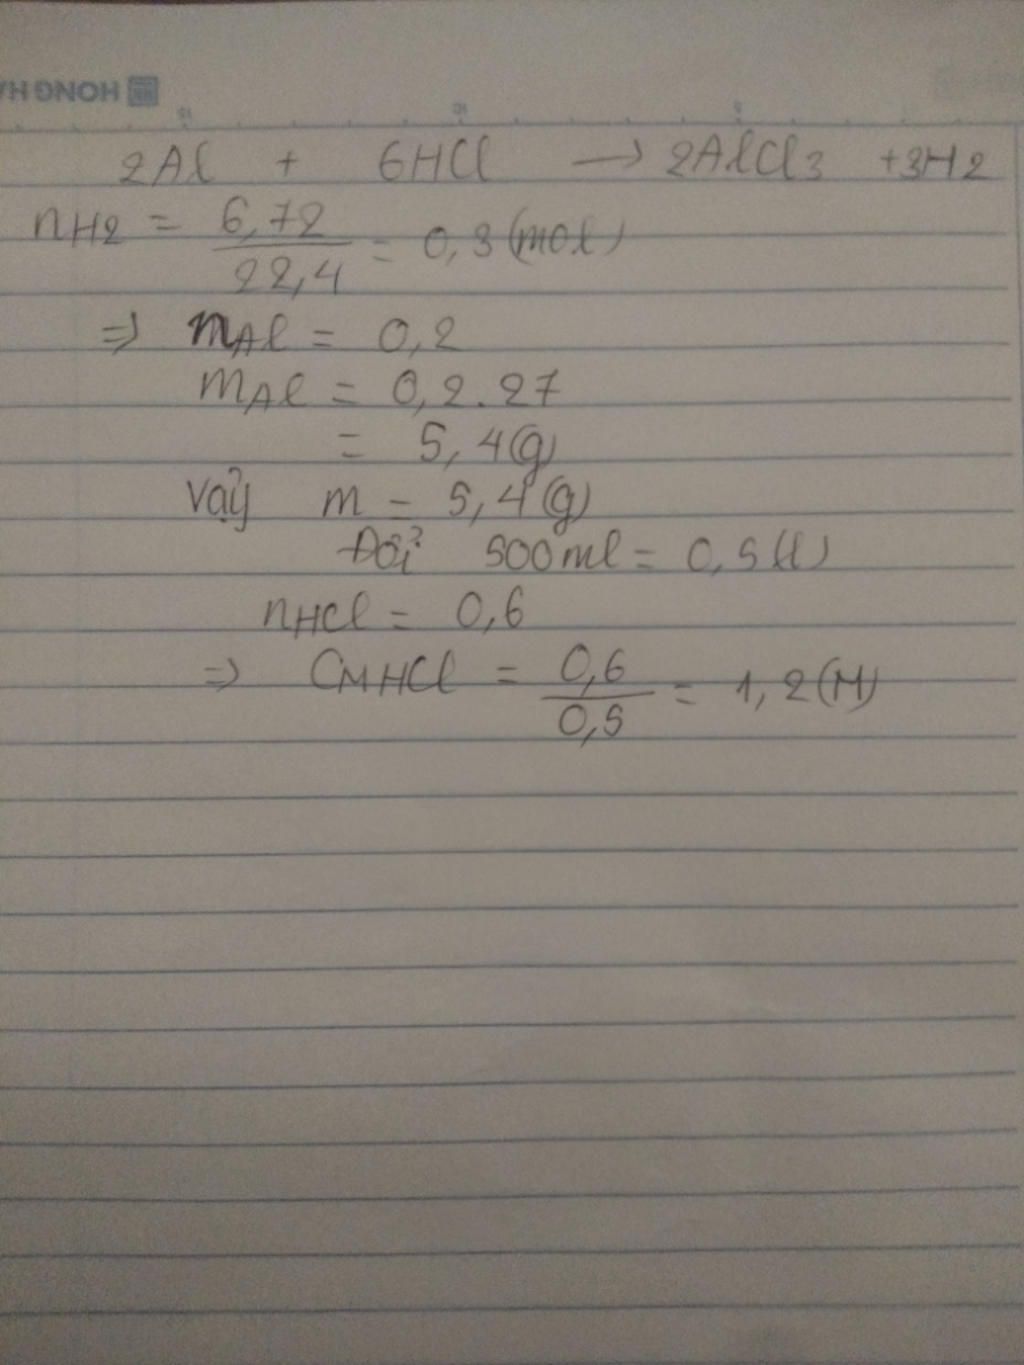 HONG HA
2Al + 6HCl → 2AlCl3 + 3H2
nH2 = 6,72 / 22,4 = 0,3 (mol)
=> nAl = 0,2
mAl = 0,2.27
= 5,4 (g)
Vậy m = 5,4 (g)
Đổi 500ml = 0,5 (l)
nHCl = 0,6
=> CMHCl = 0,6 / 0,5 = 1,2 (M)